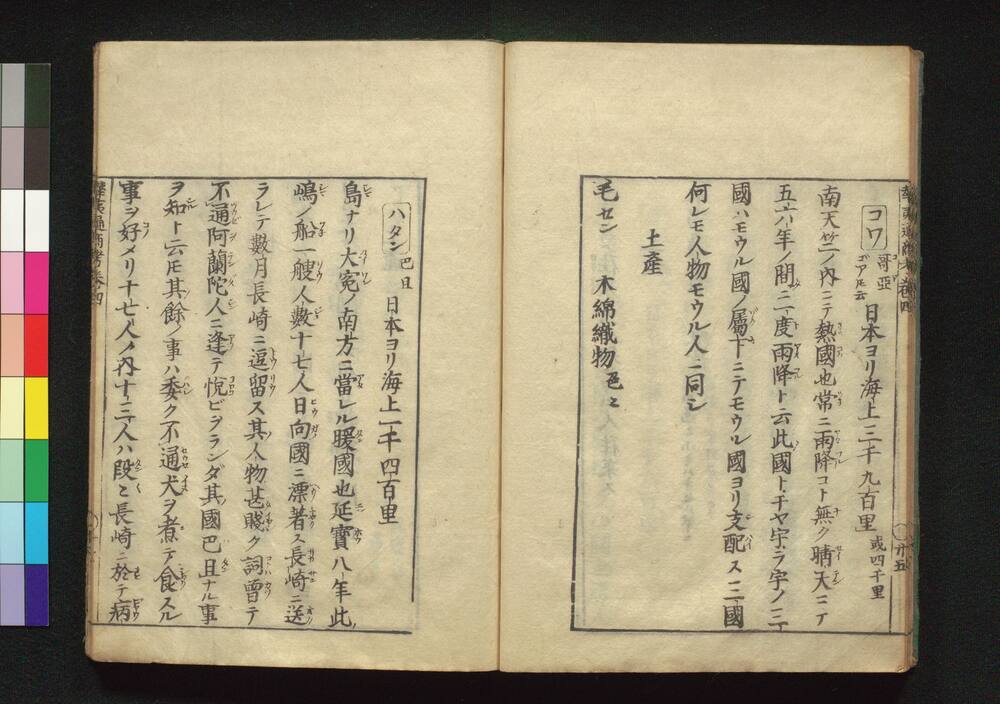 コワ 哥亞 ゴアトモ云 日本ヨリ海上三千九百里 或四千里
南天竺ノ内ニテ熱國也常ニ雨降コト無ク晴天ニテ
五六年ノ間ニ一度雨降ト云此國ト
國ハモウル國ノ屬下ニテモウル國ヨリ支配ス三國
何レモ人物モウル人ニ同シ
土產
毛セン 木綿織物 色々
華夷通商考巻四
廿五
ハタン 巴旦 日本ヨリ海上一千四百里
島ナリ大寃ノ南方ニ當レル暖國也延寶八年此
嶋ノ船一艘人數十七人日向國ニ漂著ス長崎ニ送
ラレテ數月長崎ニ逗留ス其人物甚賤ク詞曽テ
不通阿蘭陀人ニ逢テ悅ビヲランダ其國巴旦ナル事
ヲ知ト云𪜈其餘ノ事ハ委ク不通犬ヲ煮テ食スル
事ヲ好メリ十七人ノ内十三人ハ段々長崎ニ於テ病
華夷通商考巻四